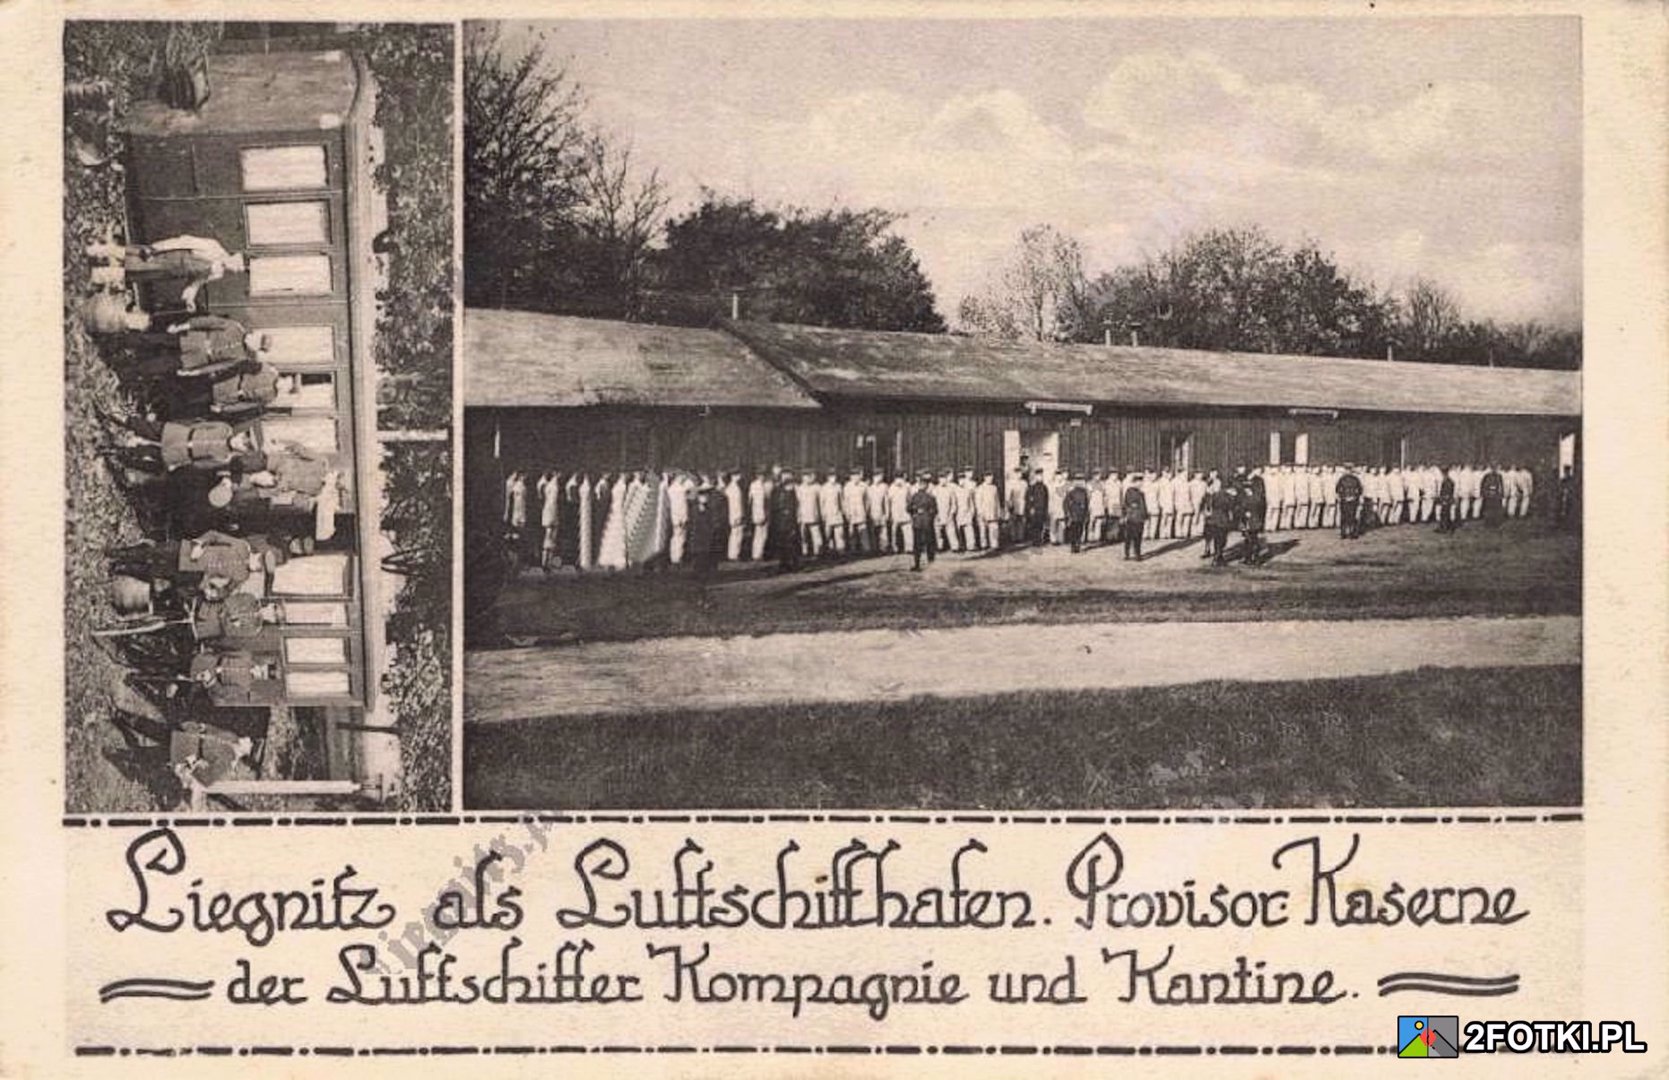 Liegnitz als Luftschiffhafen. Provisor: Kaserne
der Luftschiffer Kompagnie und Kantine.
2FOTKI.PL